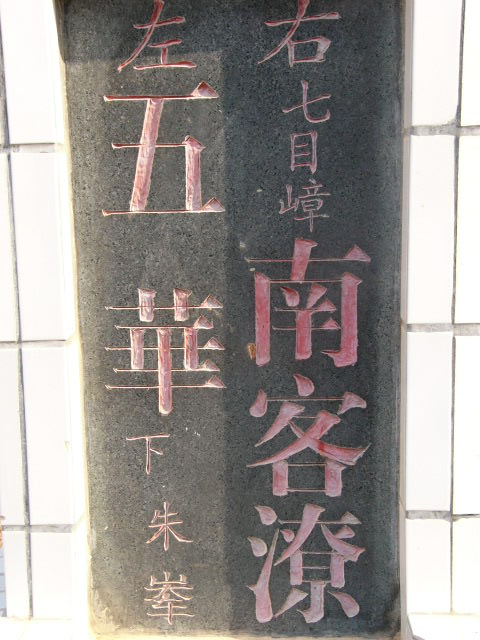 右七目嶂南客潦
左五華下朱峯